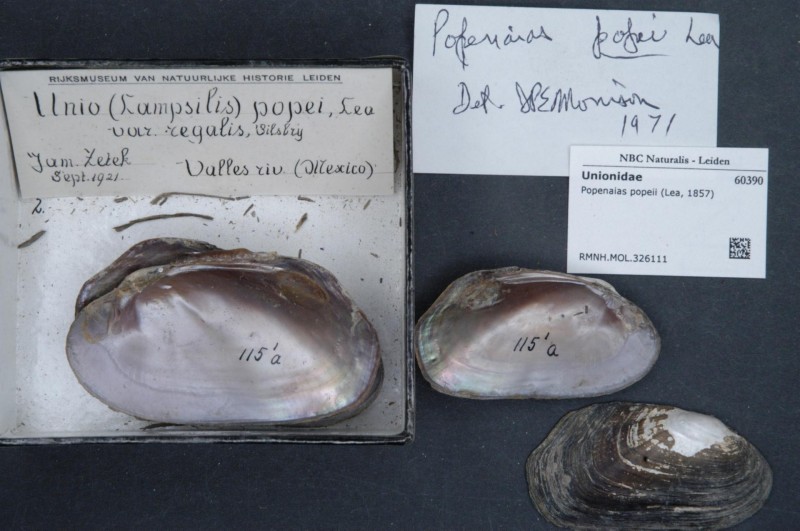 RIJKSMUSEUM VAN NATUURLIJKE HISTORIE LEIDEN
Unio (Lampsilis) popei, Lea
var. regalis, Pilsbry
Jam. Zetek
Sept. 1921.
Valles riv. (Mexico)
2.
Popenaias popei Lea
Det. JPE Morrison
1971
NBC Naturalis - Leiden
Unionidae 60390
Popenaias popeii (Lea, 1857)
RMNH.MOL.326111
115'a
115'a